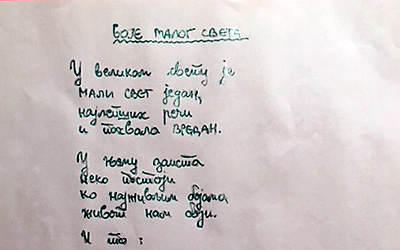 БОЈЕ МАЛОГ СВЕТА
У великом свету је
МАЛИ СВЕТ један,
најлепших речи
и похвала ВРЕДАН.
У њему заиста
неко постоји
ко најживљим бојама
живот нам боји.
И то :